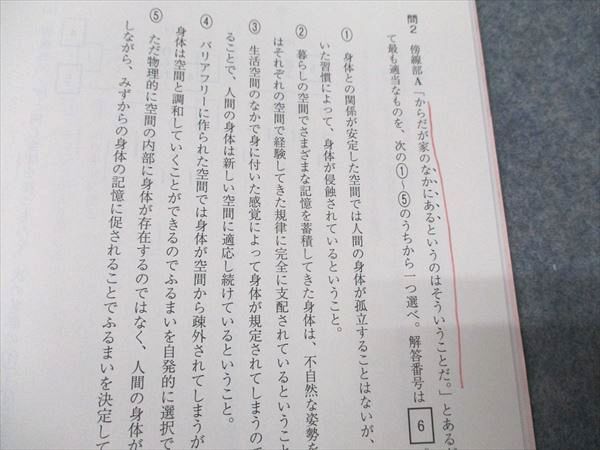 問2 傍線部A「からだが家のなかにあるというのはそういうことだ。」とあるが
て最も適当なものを、次の①〜⑤のうちから一つ選べ。解答番号は 6
① 身体との関係が安定した空間では人間の身体が孤立することはないが、
いた習慣によって、身体が侵蝕されているということ。
② 暮らしの空間でさまざまな記憶を蓄積してきた身体は、不自然な姿勢を
はそれぞれの空間で経験してきた規律に完全に支配されているということ
③ 生活空間のなかで身に付いた感覚によって身体が規定されてしまうので
ることで、人間の身体は新しい空間に適応し続けているということ。
④ バリアフリーに作られた空間では身体が空間から疎外されてしまうが
身体は空間と調和していくことができるのでふるまいを自発的に選択で
⑤ ただ物理的に空間の内部に身体が存在するのではなく、人間の身体が
しながら、みずからの身体の記憶に促されることでふるまいを決定して